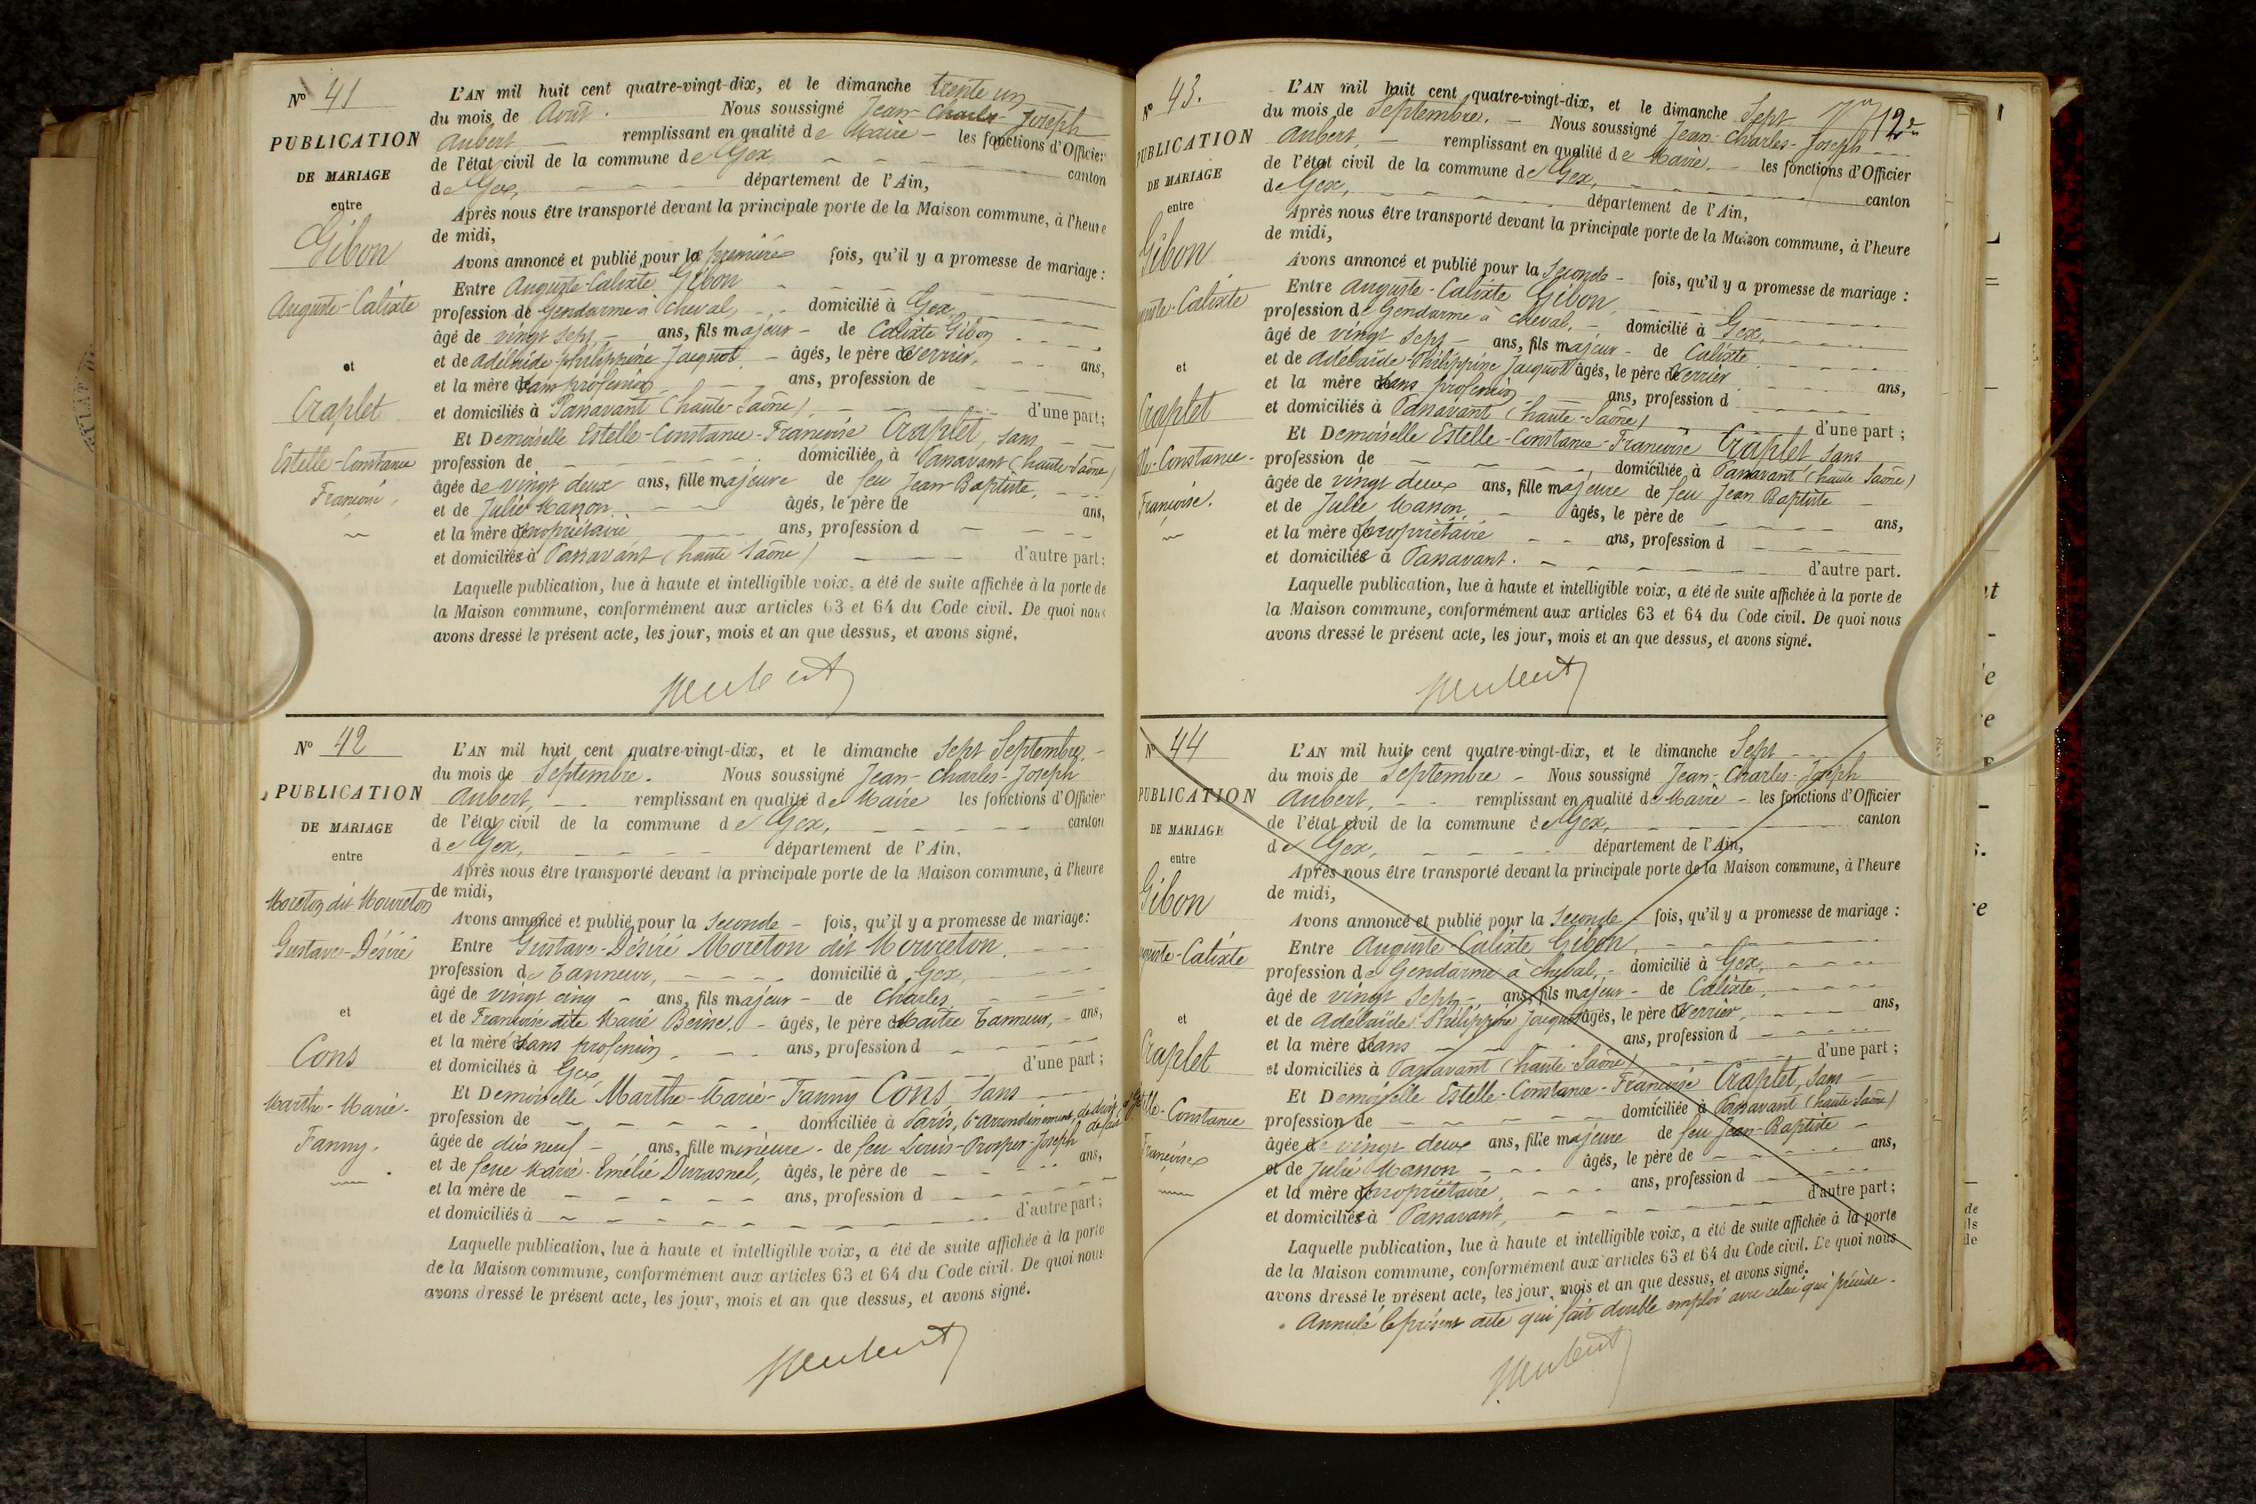 N° 41
PUBLICATION
DE MARIAGE
entre
Gibon
Auguste-Calixte
et
Craplet
Estelle-Constance
Françoise
L'AN mil huit cent quatre-vingt-dix, et le dimanche trente un
du mois de Août. Nous soussigné Jean-Charles-Joseph
Aubert, remplissant en qualité de Maire - les fonctions d'Officier
de l'état civil de la commune de Gex canton
de Gex, département de l'Ain,
Après nous être transporté devant la principale porte de la Maison commune, à l'heure
de midi,
Avons annoncé et publié pour la première fois, qu'il y a promesse de mariage :
Entre Auguste-Calixte Gibon
profession de Gendarme à cheval, domicilié à Gex,
âgé de vingt sept - ans, fils majeur - de Calixte Gibon
et de Adélaïde-philippine Jacquot - âgés, le père de Verrier, ans,
et la mère de sans profession ans, profession de
et domiciliés à Passavant (haute-Saône) d'une part ;
Et Demoiselle Estelle-Constance-Françoise Craplet, sans
profession de domiciliée à Passavant (haute-Saône)
âgée de vingt deux ans, fille majeure de feu Jean-Baptiste,
et de Julie Masson âgés, le père de ans,
et la mère de propriétaire ans, profession d
et domiciliés à Passavant (haute Saône) d'autre part ;
Laquelle publication, lue à haute et intelligible voix, a été de suite affichée à la porte de
la Maison commune, conformément aux articles 63 et 64 du Code civil. De quoi nous
avons dressé le présent acte, les jour, mois et an que dessus, et avons signé.
N° 42
PUBLICATION
DE MARIAGE
entre
Moreton dit Moureton
Gustave-Désiré
et
Cons
Marthe-Marie-
Fanny.
L'AN mil huit cent quatre-vingt-dix, et le dimanche sept Septembre
du mois de Septembre. Nous soussigné Jean-Charles-Joseph
Aubert, remplissant en qualité de Maire les fonctions d'Officier
de l'état civil de la commune de Gex, canton
de Gex, département de l'Ain,
Après nous être transporté devant la principale porte de la Maison commune, à l'heure
de midi,
Avons annoncé et publié pour la seconde - fois, qu'il y a promesse de mariage :
Entre Gustave-Désiré Moreton dit Mourreton
profession de Tanneur, domicilié à Gex,
âgé de vingt cinq - ans, fils majeur - de Charles
et de Françoise dite Marie - âgés, le père de Maître Tanneur, - ans,
et la mère de sans profession ans, profession d
et domiciliés à Gex d'une part ;
Et Demoiselle Marthe-Marie-Fanny Cons, sans
profession de domiciliée à Paris, arrondissement, de droit,
âgée de dix neuf - ans, fille mineure - de feu Louis-Prosper-Joseph
et de feue Marie-Emélie Durasnel, âgés, le père de ans,
et la mère de ans, profession d
et domiciliés à d'autre part ;
Laquelle publication, lue à haute et intelligible voix, a été de suite affichée à la porte
de la Maison commune, conformément aux articles 63 et 64 du Code civil. De quoi nous
avons dressé le présent acte, les jour, mois et an que dessus, et avons signé.
N° 43.
PUBLICATION
DE MARIAGE
entre
Gibon
uste-Calixte
et
Craplet
lle-Constance-
Françoise.
L'AN mil huit cent quatre-vingt-dix, et le dimanche Sept
du mois de Septembre. - Nous soussigné Jean-Charles-Joseph
Aubert, - remplissant en qualité de Maire. - les fonctions d'Officier
de l'état civil de la commune de Gex, canton
de Gex, département de l'Ain,
Après nous être transporté devant la principale porte de la Maison commune, à l'heure
de midi,
Avons annoncé et publié pour la Seconde - fois, qu'il y a promesse de mariage :
Entre Auguste-Calixte Gibon,
profession de Gendarme à cheval, - domicilié à Gex,
âgé de vingt sept - ans, fils majeur - de Calixte
et de Adélaïde-Philippine Jacquot âgés, le père de Verrier ans,
et la mère de sans profession ans, profession d
et domiciliés à Passavant (haute-Saône) d'une part ;
Et Demoiselle Estelle-Constance-Françoise Craplet, sans
profession de domiciliée à Passavant (haute Saône)
âgée de vingt deux ans, fille majeure de feu Jean Baptiste
et de Julie Masson, âgés, le père de ans,
et la mère de propriétaire ans, profession d
et domiciliés à Passavant. d'autre part.
Laquelle publication, lue à haute et intelligible voix, a été de suite affichée à la porte de
la Maison commune, conformément aux articles 63 et 64 du Code civil. De quoi nous
avons dressé le présent acte, les jour, mois et an que dessus, et avons signé.
N° 44
PUBLICATION
DE MARIAGE
entre
Gibon
uguste-Calixte
et
Craplet
Estelle-Constance
Françoise
L'AN mil huit cent quatre-vingt-dix, et le dimanche Sept
du mois de Septembre - Nous soussigné Jean-Charles-Joseph
Aubert, remplissant en qualité de Maire - les fonctions d'Officier
de l'état civil de la commune de Gex, canton
de Gex, département de l'Ain,
Après nous être transporté devant la principale porte de la Maison commune, à l'heure
de midi,
Avons annoncé et publié pour la Seconde - fois, qu'il y a promesse de mariage :
Entre Auguste-Calixte Gibon,
profession de Gendarme à cheval, - domicilié à Gex,
âgé de vingt Sept - ans, fils majeur - de Calixte,
et de Adélaïde Philippine Jacquot âgés, le père de Verrier, ans,
et la mère de sans ans, profession d
et domiciliés à Passavant (haute-Saône) d'une part ;
Et Demoiselle Estelle-Constance-Françoise Craplet, sans
profession de domiciliée à Passavant (haute Saône)
âgée de vingt deux ans, fille majeure de feu Jean-Baptiste
et de Julie Masson âgés, le père de ans,
et la mère de propriétaire, ans, profession d
et domiciliés à Passavant, d'autre part ;
Laquelle publication, lue à haute et intelligible voix, a été de suite affichée à la porte
de la Maison commune, conformément aux articles 63 et 64 du Code civil. De quoi nous
avons dressé le présent acte, les jour, mois et an que dessus, et avons signé.
Annulé le présent acte qui fait double emploi avec celui qui précède.